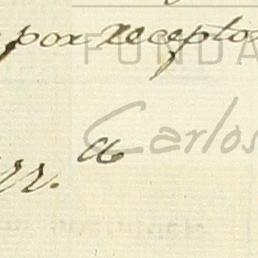 por receptos
FUNDA
Carlos
rr. a